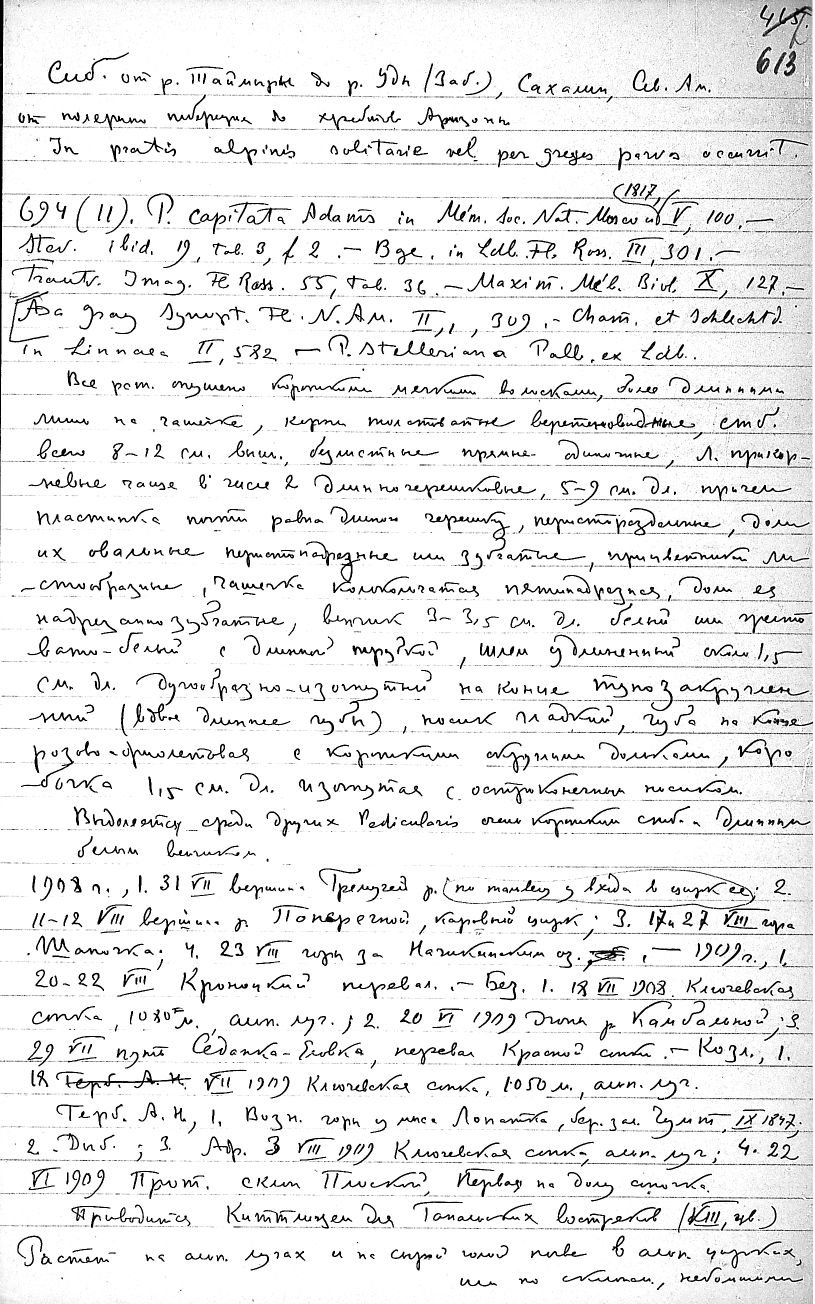 415
613
Сиб. от р. Таймыры до р. Уди (Заб.), Сахалин, Сев. Ам.
от полярного побережья до хребтов Аризоны
In pratis alpinis solitarie vel per greges parvos occurrit.
(1817)
694 (11). P. capitata Adams in Mém. Soc. Nat. Moscou V, 100. —
Stev. ibid. 19, tab. 3, f 2. — Bge. in Ldb. Fl. Ross. III, 301. —
Trautv. Imag. Fl. Ross. 55, tab. 36. — Maxim. Mél. Biol. X, 127. —
[Asa Gray Synopt. Fl. N. Am. II, 1, 309. — Cham. et Schlechtd.
in Linnaea II, 582 — P. Stelleriana Pall. ex Ldb.
Все раст. опушено короткими мягкими волосками, более длинными
лишь на чашечке, корни толстоватые веретеновидные, стеб.
всего 8–12 см. выш., безлистные прямые одиночные, Л. прикор-
невые чаще в числе 2 длинночерешковые, 5–9 см. дл. причем
пластинка почти равна длиною черешку, перистораздельные, доли
их овальные перистонадрезные или зубчатые, прицветники ли-
стообразные, чашечка колокольчатая пятинадрезная, доли ея
надрезаннозубчатые, венчик 3–3,5 см. дл. белый или желто
вато-белый с длинной трубкой, шлем удлиненный около 1,5
см. дл. дугообразно-изогнутый на конце тупозакруглен
ный (вдвое длиннее губы), носик гладкий, губа на конце
розово-фиолетовая с короткими округлыми дольками, коро
бочка 1,5 см. дл. изогнутая с остроконечным носиком.
Выделяется среди других Pedicularis очень коротким стеб. и длинным
белым венчиком.
1908 г., 1. 31 VII вершина р. (по у входа в цирк ее); 2.
11–12 VIII вершина р. Поперечной, каровый цирк; 3. 17 и 27 VIII гора
Шапочка; 4. 23 VIII горы за Начикинским оз. — 1909 г., 1.
20–22 VIII Кроноцкий перевал. — Без. 1. 18 VII 1908 Ключевская
сопка, 1080 м., альп. луг.; 2. 20 VI 1909 р. Камбальной; 3.
29 VII путь Седанка–Еловка, перевал Красной сопки. — Козл., 1.
18 Герб. А. Н. VII 1909 Ключевская сопка, 1050 м., альп. луг.
Герб. А. Н., 1. Возн. горы у мыса Лопатка, бер. зал. IX 1847;
2. Дыб.; 3. 3 VIII 1909 Ключевская сопка, альп. луг; 4. 22
VI 1909 Прот. склон Плоской, Первая на долу сопочка.
Приводится Киттлицем для Гапальских востряков (VIII, цв.)
Растет на альп. лугах и на сырой голой почве в альп. цирках,
или по склонам, небольшими